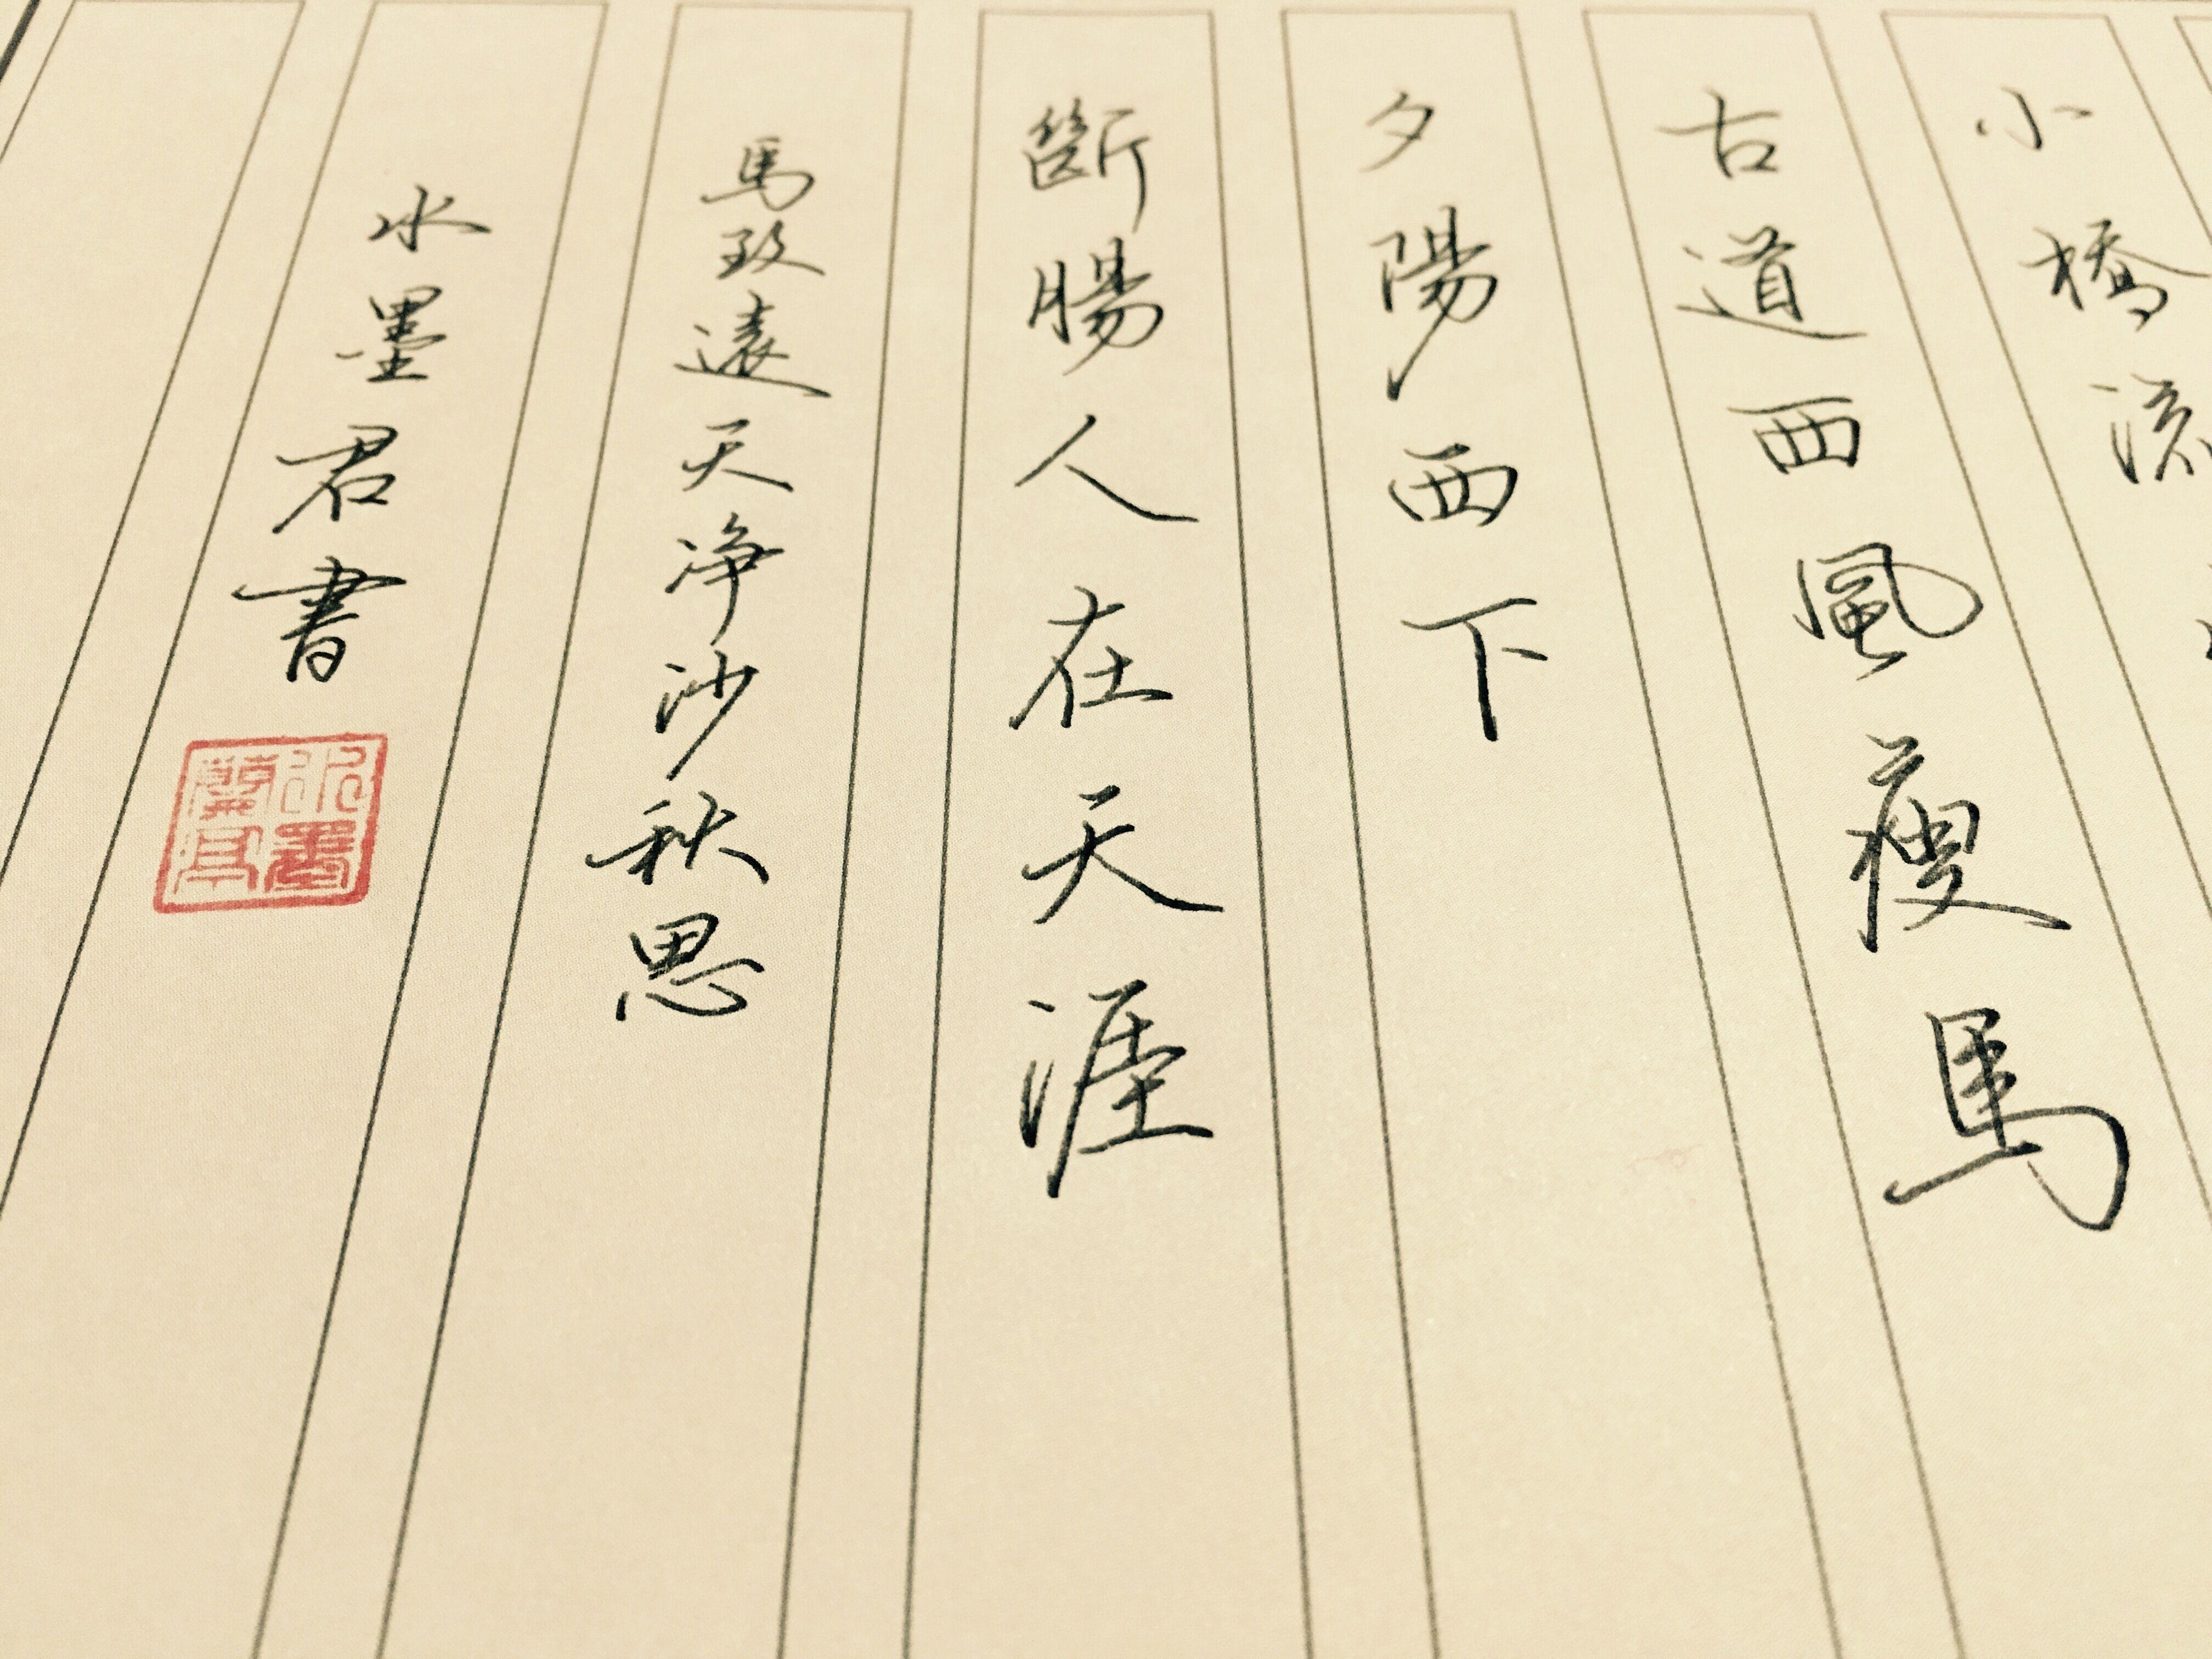 小橋流
古道西風瘦馬
夕陽西下
斷腸人在天涯
馬致遠天净沙秋思
水墨君書
水墨蘭亭